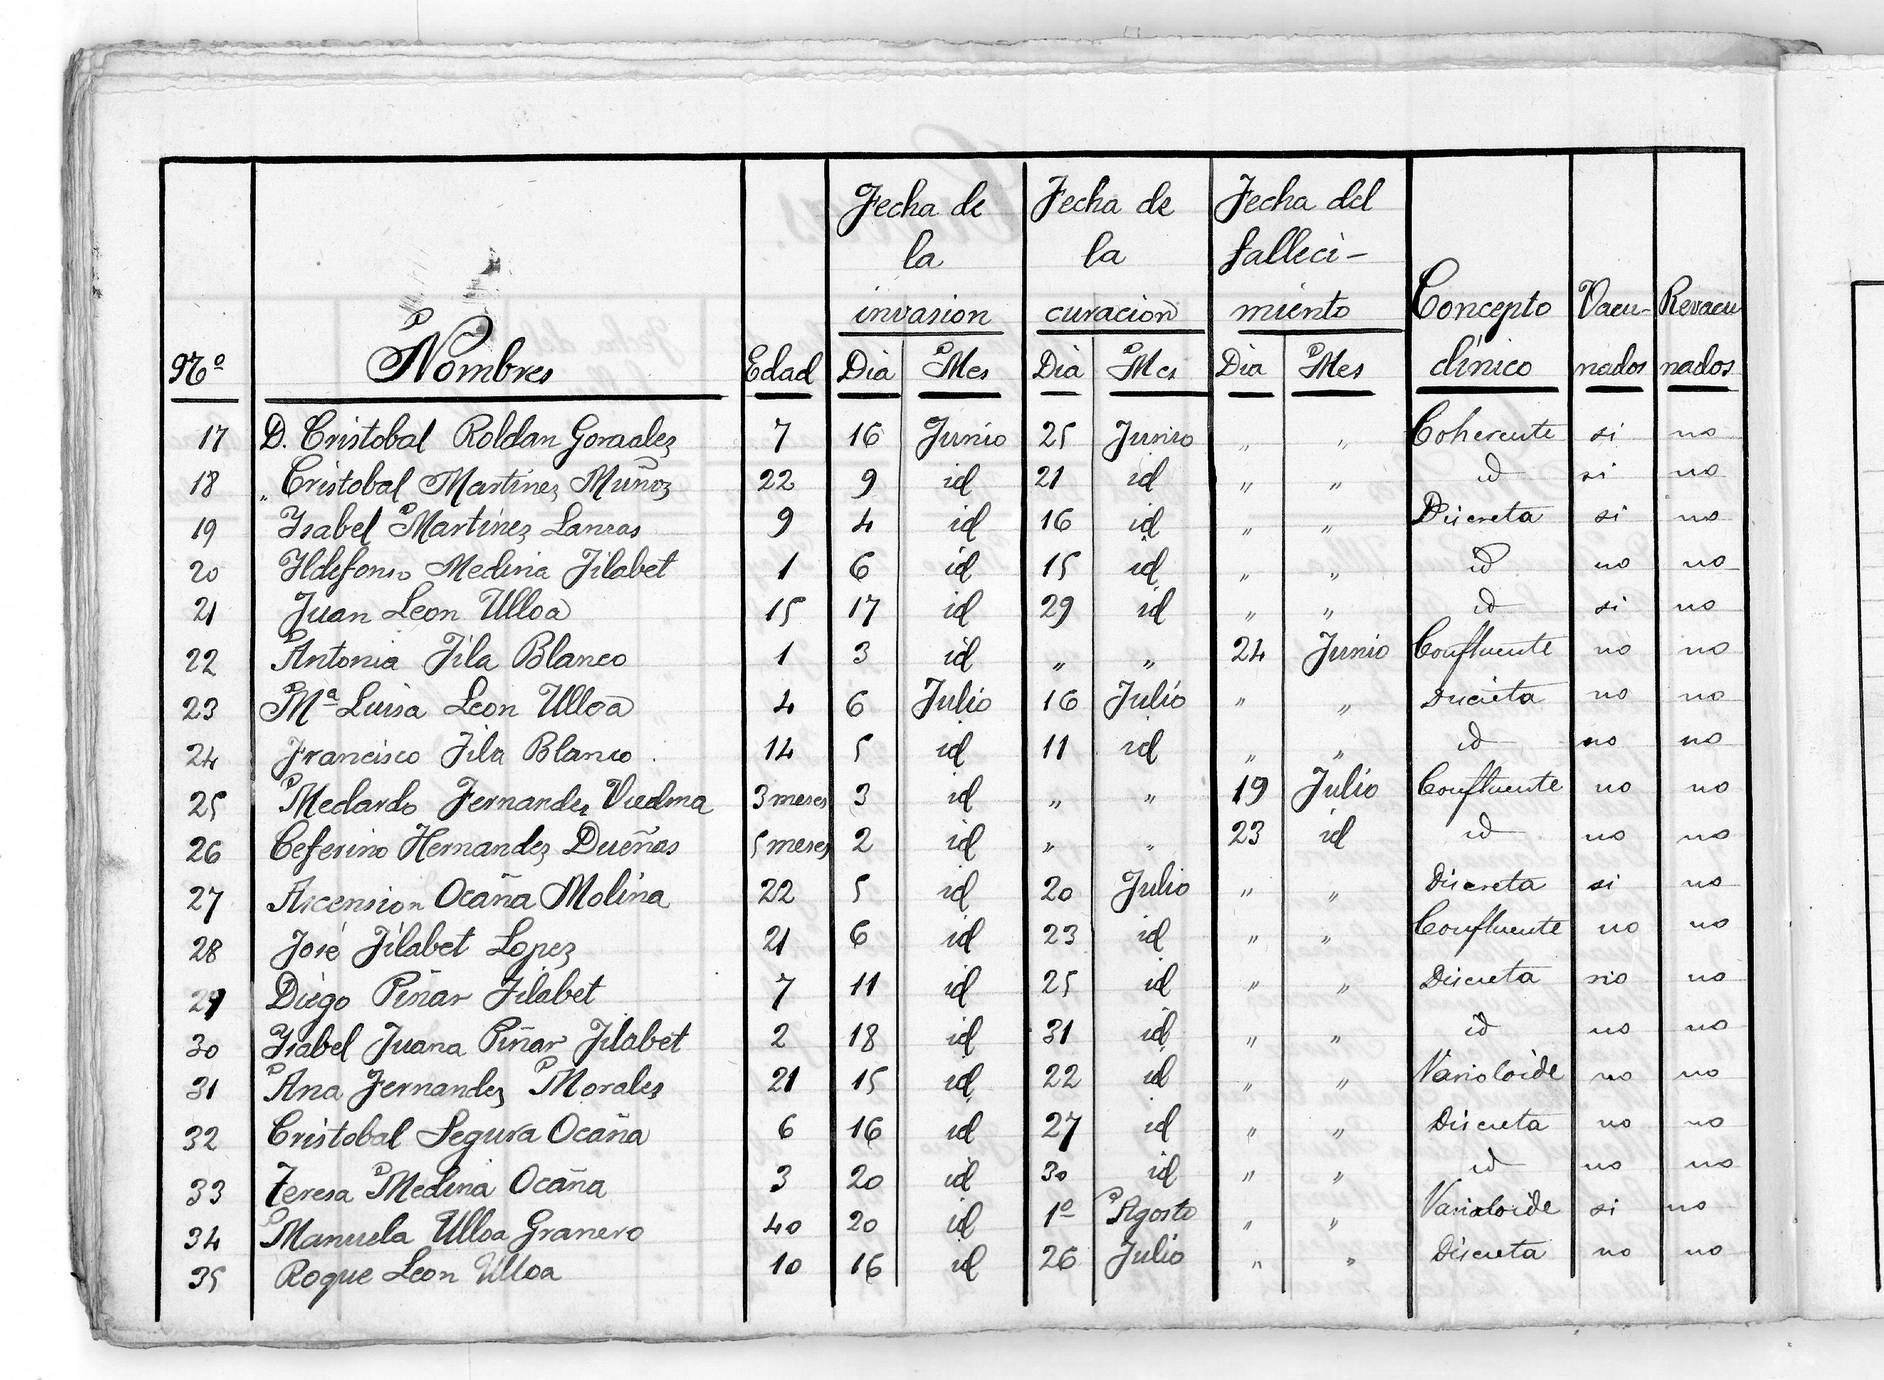 Nº Nombres Edad Fecha de la invasion Fecha de la curacion Fecha del falleci-miento Concepto clínico Vacu-nados Revacu nados
Dia Mes Dia Mes Dia Mes
17 D. Cristobal Roldan Gonzalez 7 16 Junio 25 Junio " " Coherente si no
18 " Cristobal Martinez Muñoz 22 9 id 21 id " " id si no
19 Isabel Martinez Lanzas 9 4 id 16 id " " Discreta si no
20 Ildefonso Medina Jilabet 1 6 id 15 id " " id no no
21 Juan Leon Ulloa 15 17 id 29 id " " id si no
22 Antonia Jila Blanco 1 3 id " " 24 Junio Confluente no no
23 Mª Luisa Leon Ulloa 4 6 Julio 16 Julio " " Discreta no no
24 Francisco Jila Blanco 14 5 id 11 id " " id no no
25 Medardo Fernandez Viedma 3 meses 3 id " " 19 Julio Confluente no no
26 Ceferino Hernandez Dueñas 5 meses 2 id " " 23 id id no no
27 Ascension Ocaña Molina 22 5 id 20 Julio " " Discreta si no
28 José Jilabet Lopez 21 6 id 23 id " " Confluente no no
29 Diego Piñar Jilabet 7 11 id 25 id " " Discreta no no
30 Isabel Juana Piñar Jilabet 2 18 id 31 id " " id no no
31 Ana Fernandez Morales 21 15 id 22 id " " Varioloide no no
32 Cristobal Segura Ocaña 6 16 id 27 id " " Discreta no no
33 Teresa Medina Ocaña 3 20 id 30 id " " id no no
34 Manuela Ulloa Granero 40 20 id 1º Agosto " " Varioloide si no
35 Roque Leon Ulloa 10 16 id 26 Julio " " Discreta no no